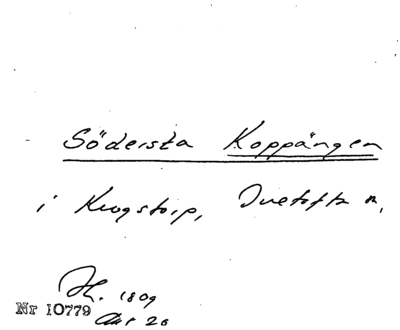 Södersta Koppängen
i Krogstorp, Duetofta n,
H. 1809
Nr 10779
Akt 20